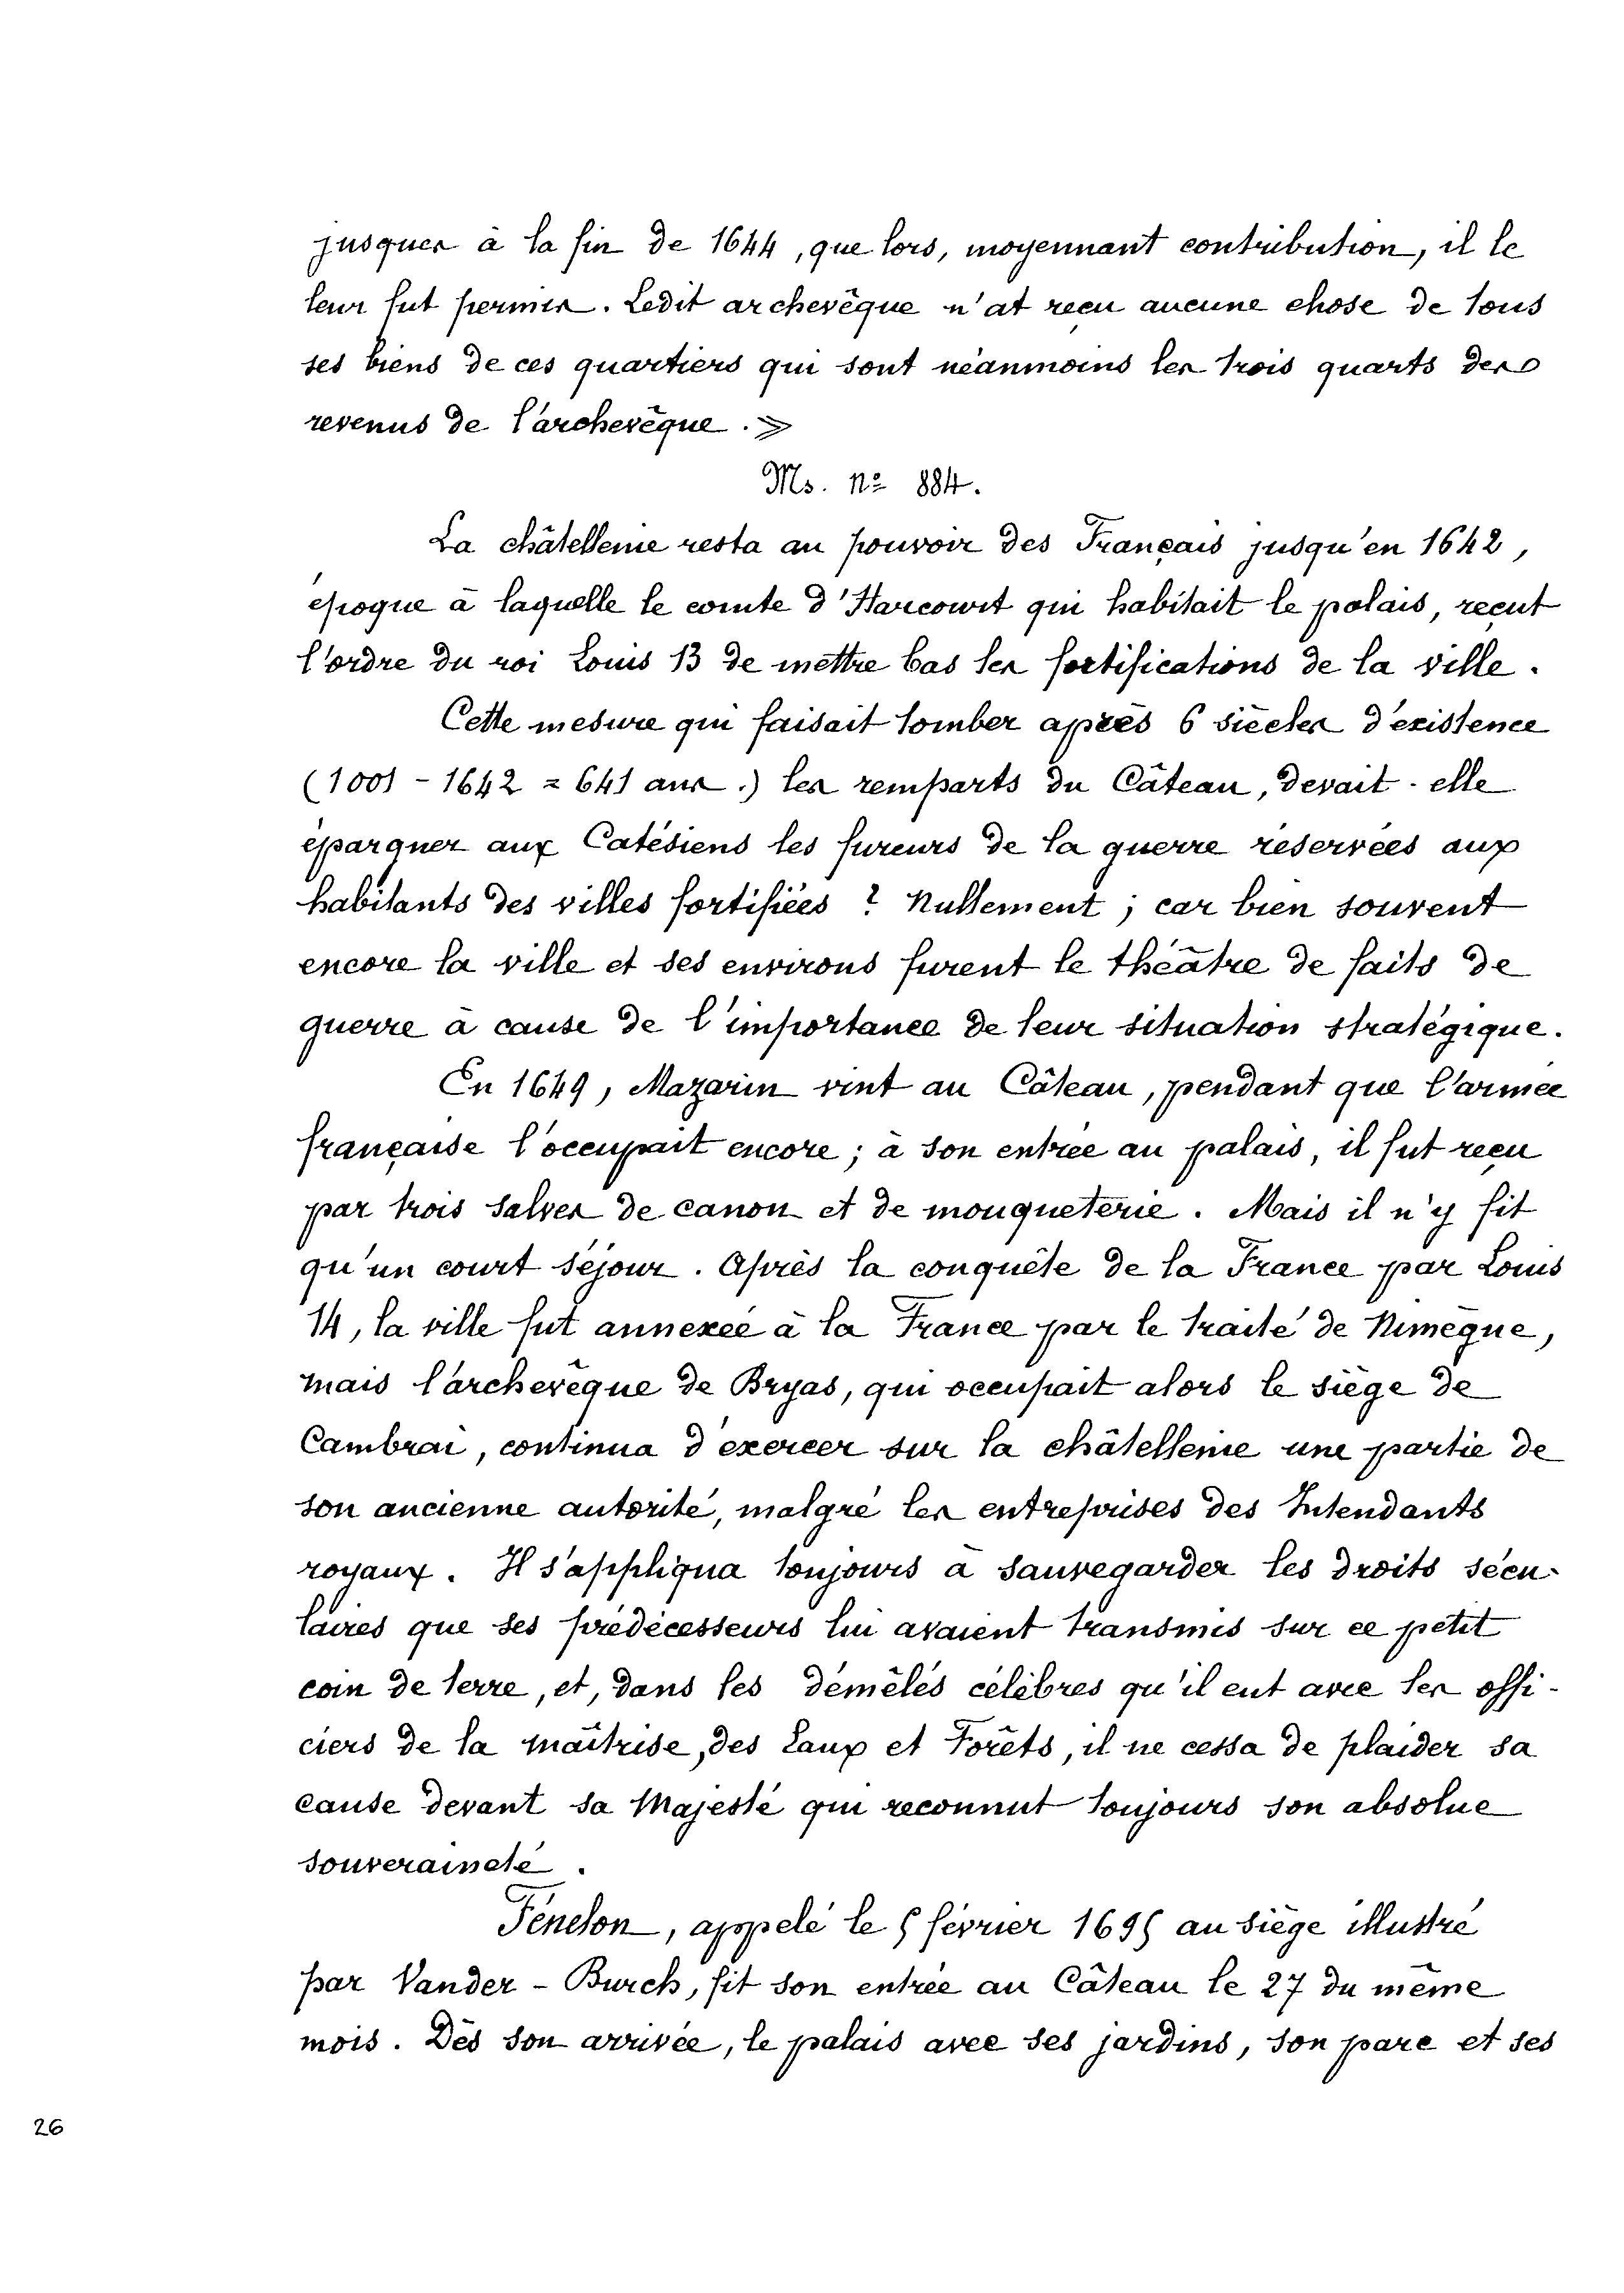 jusques à la fin de 1644, que lors, moyennant contribution, il le
leur fut permis. Ledit archevêque n'at reçu aucune chose de tous
ses biens de ces quartiers qui sont néanmoins les trois quarts des
revenus de l'archevêque. »
Ms. nº 884.
La châtellenie resta au pouvoir des Français jusqu'en 1642,
époque à laquelle le comte d'Harcourt qui habitait le palais, reçut
l'ordre du roi Louis 13 de mettre bas les fortifications de la ville.
Cette mesure qui faisait tomber après 6 siècles d'existence
(1001 - 1642 = 641 ans.) les remparts du Câteau, devait-elle
épargner aux Catésiens les fureurs de la guerre réservées aux
habitants des villes fortifiées ? Nullement ; car bien souvent
encore la ville et ses environs furent le théâtre de faits de
guerre à cause de l'importance de leur situation stratégique.
En 1649, Mazarin vint au Câteau, pendant que l'armée
française l'occupait encore ; à son entrée au palais, il fut reçu
par trois salves de canon et de mouqueterie. Mais il n'y fit
qu'un court séjour. Après la conquête de la France par Louis
14, la ville fut annexée à la France par le traité de Nimègue,
mais l'archevêque de Bryas, qui occupait alors le siège de
Cambrai, continua d'exercer sur la châtellenie une partie de
son ancienne autorité, malgré les entreprises des Intendants
royaux. Il s'appliqua toujours à sauvegarder les droits sécu-
laires que ses prédécesseurs lui avaient transmis sur ce petit
coin de terre, et, dans les démêlés célèbres qu'il eut avec les offi-
ciers de la maîtrise, des Eaux et Forêts, il ne cessa de plaider sa
cause devant sa Majesté qui reconnut toujours son absolue
souveraineté.
Fénelon, appelé le 5 février 1695 au siège illustré
par Vander-Burch, fit son entrée au Câteau le 27 du même
mois. Dès son arrivée, le palais avec ses jardins, son parc et ses
26